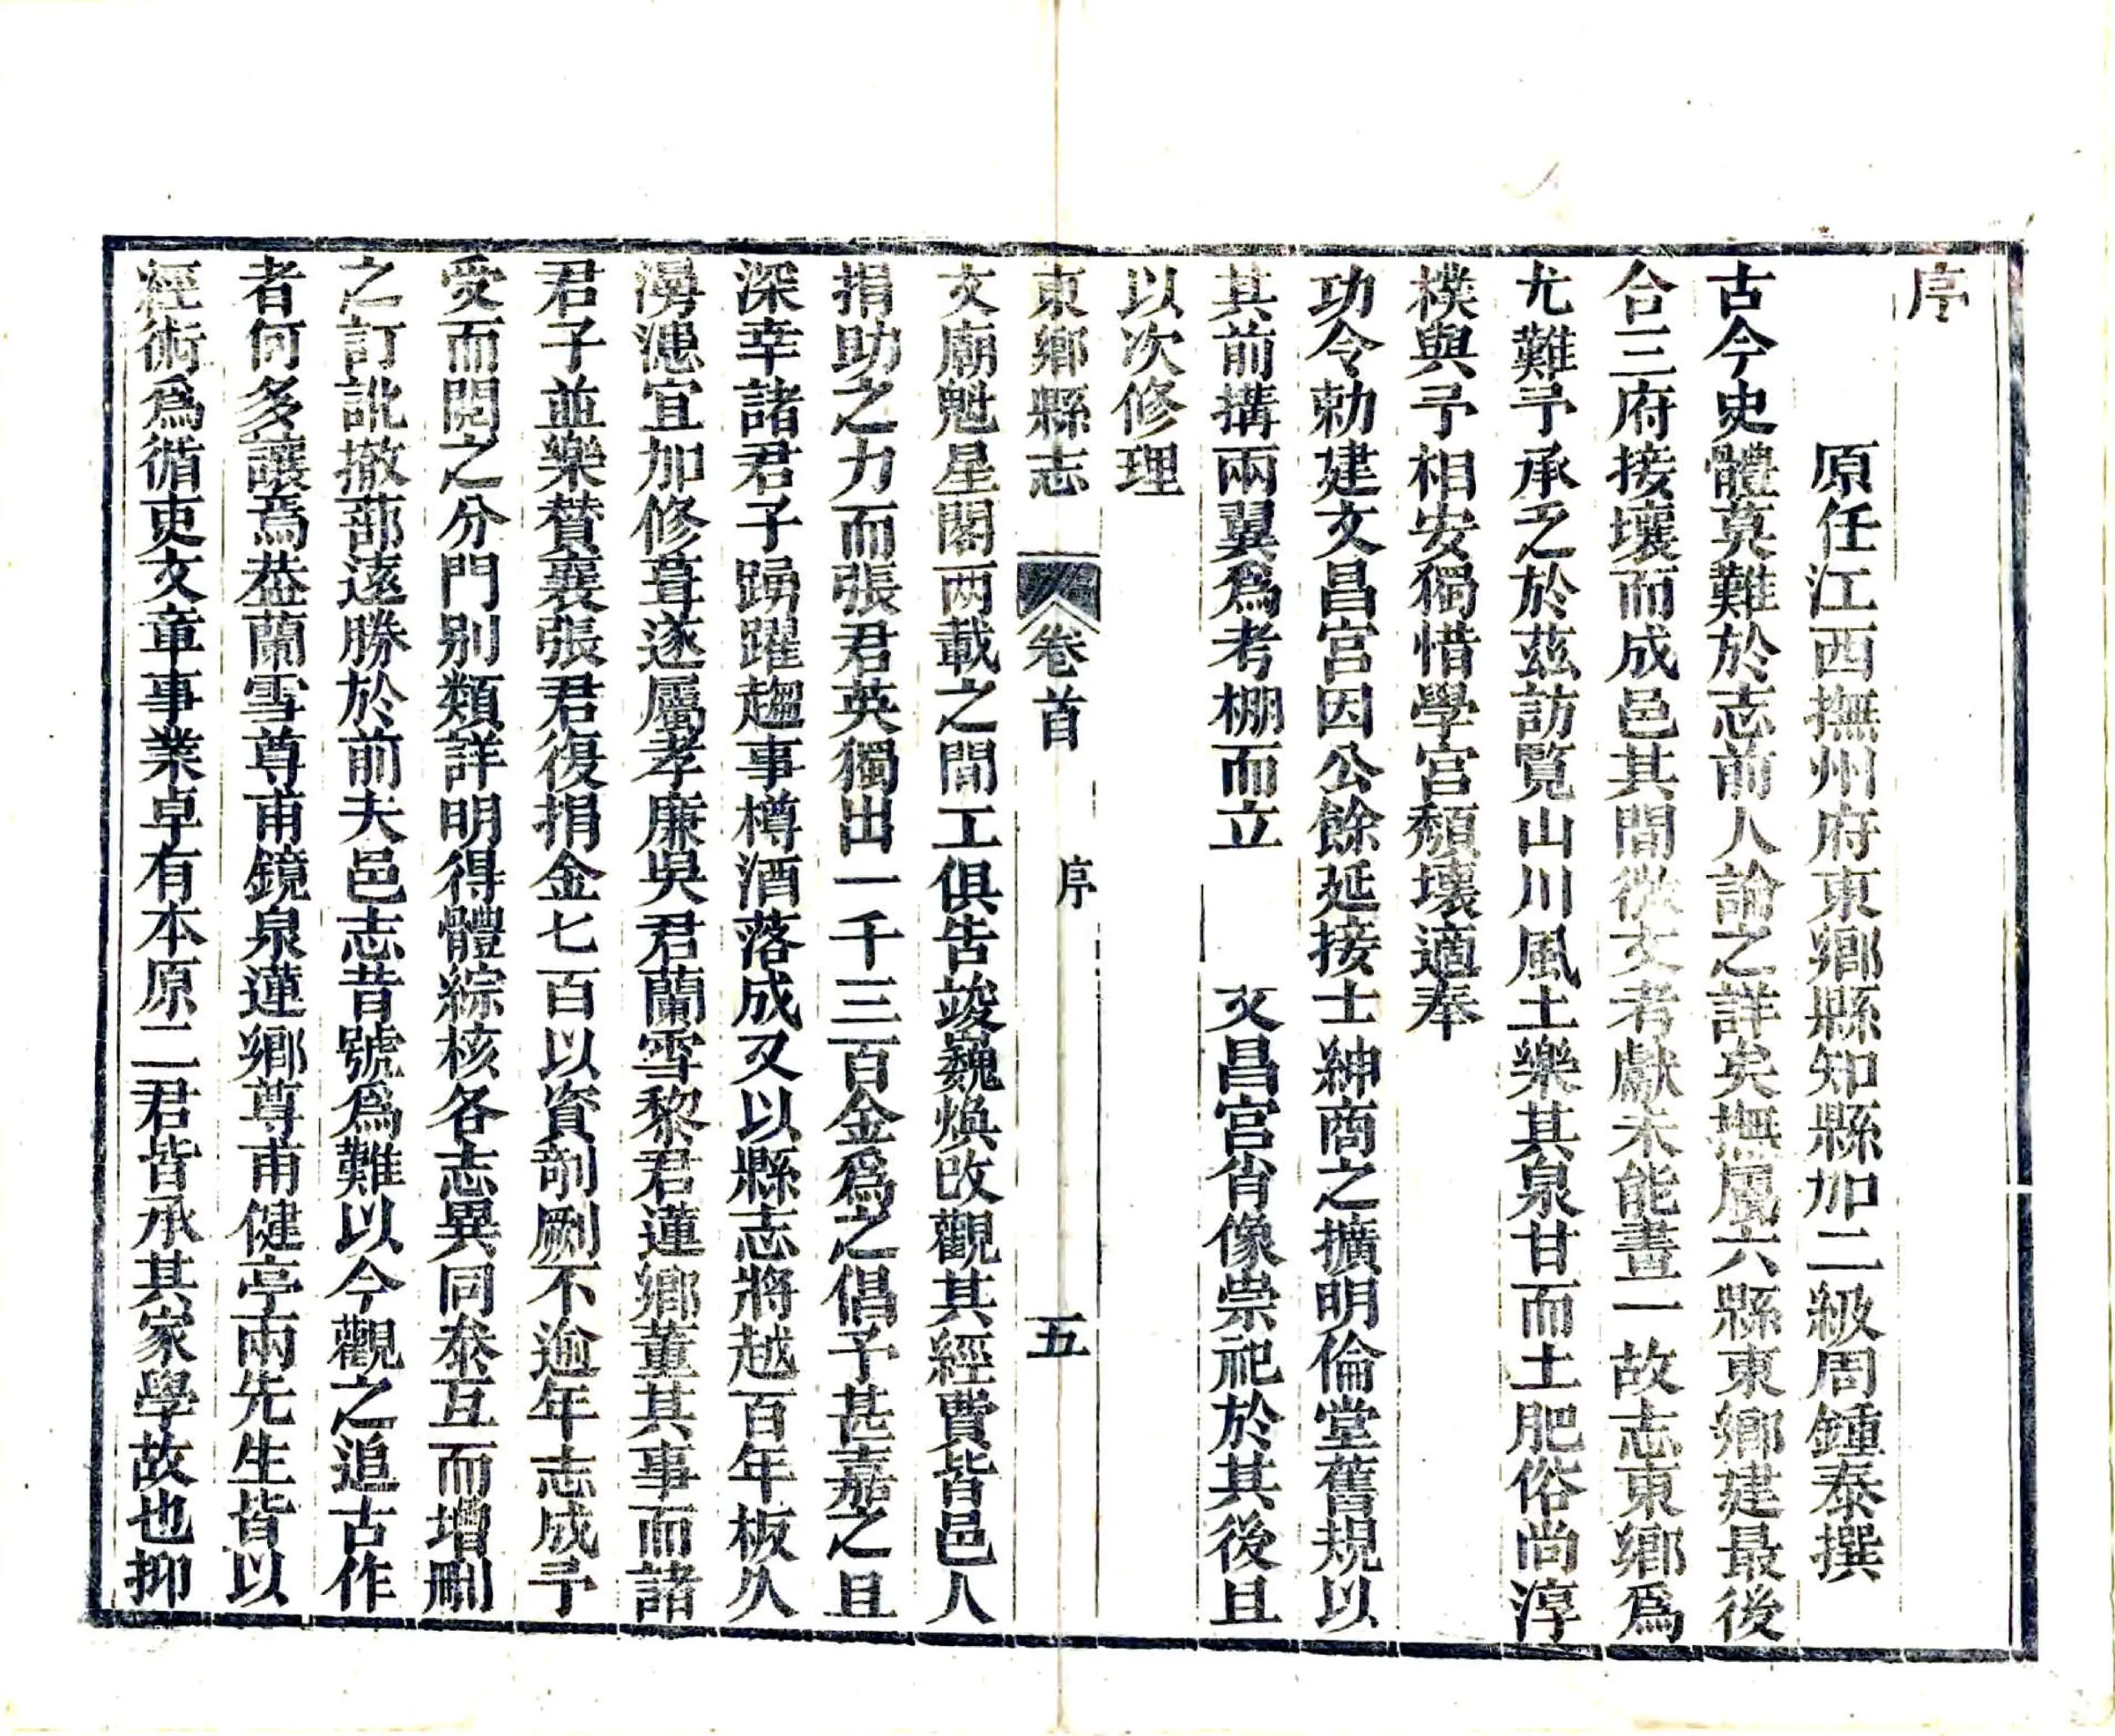 序
原任江西撫州府東鄉縣知縣加二級周鍾泰撰
古今史體莫難於志前人論之詳矣撫屬六縣東鄉建最後
合三府接壤而成邑其間徵文考獻未能畫一故志東鄉爲
尤難予承乏於茲訪覽山川風土樂其泉甘而土肥俗尚淳
樸與予相安獨惜學宮頹壞適奉
功令勅建文昌宮因公餘延接士紳商之擴明倫堂舊規以
其前搆兩翼爲考棚而立 文昌宮肖像崇祀於其後且
以次修理
東鄉縣志 卷首 序 五
文廟魁星閣两載之間工俱告竣巍煥改觀其經費皆邑人
捐助之力而張君英獨出一千三百金爲之倡予甚嘉之且
深幸諸君子踴躍趨事樽酒落成又以縣志將越百年板久
漫漶宜加修葺遂屬孝廉吳君蘭雪黎君蓮鄉董其事而諸
君子並樂贊襄張君復捐金七百以資剞劂不逾年志成予
受而閱之分門别類詳明得體綜核各志異同叅互而增刪
之訂訛撤蔀遠勝於前夫邑志昔號爲難以今觀之追古作
者何多讓焉葢蘭雪尊甫鏡泉蓮鄉尊甫健亭兩先生皆以
經術爲循吏文章事業卓有本原二君皆承其家學故也抑